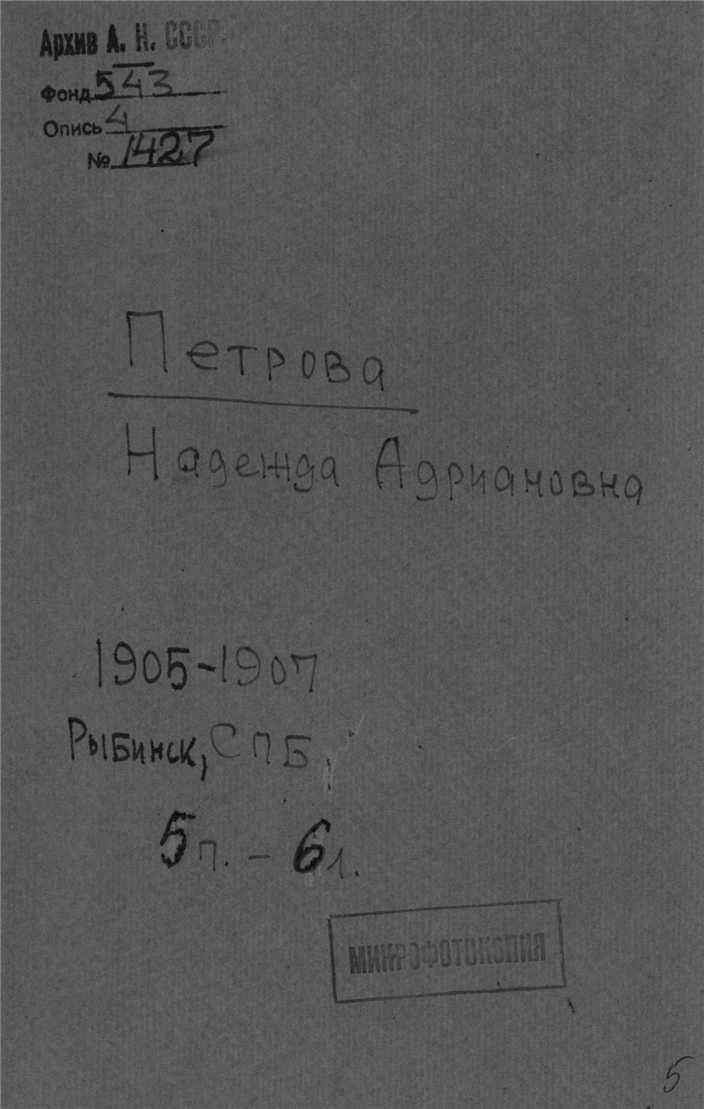 Архив А. Н. СССР
Фонд 543
Опись 4
№ 1427
Петрова
Надежда Адриановна
1905-1907
Рыбинск, СПБ.
5п. - 6л.
МИКРОФОТОКОПИЯ
5